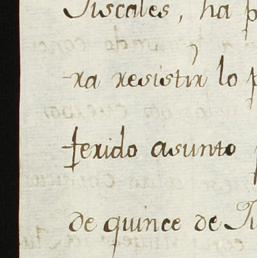 Fiscales, ha p
ra resistir lo p
ferido asunto
de quince de Ju